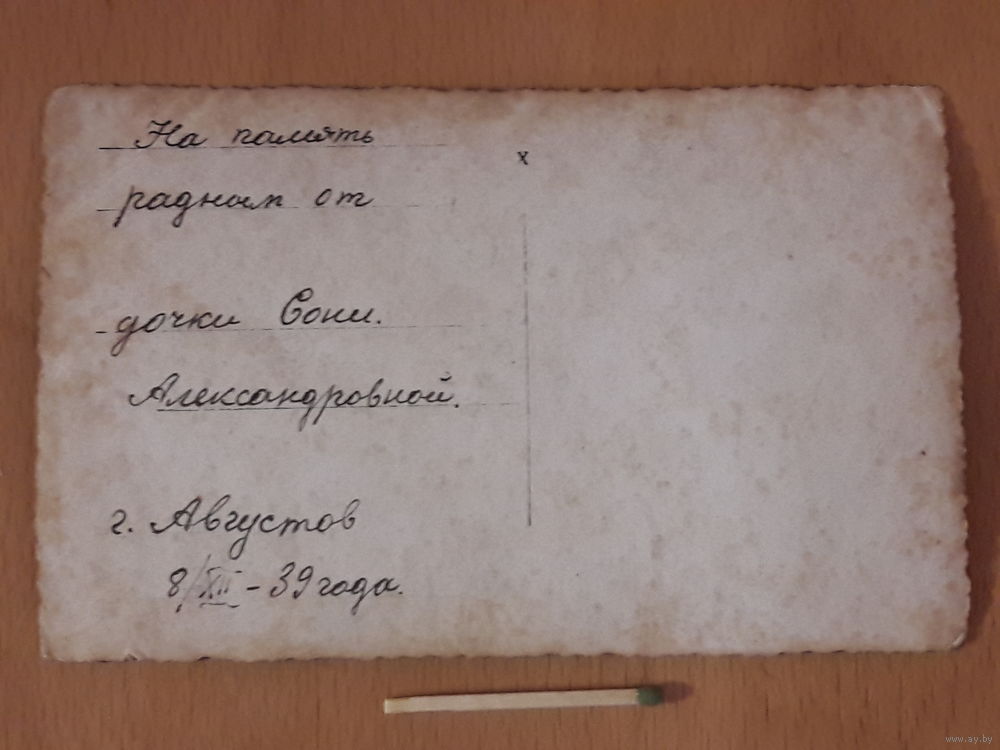 На память
радным от
дочки Сони.
Александровной.
г. Августов
8/XII - 39 года.
x
www.ay.by